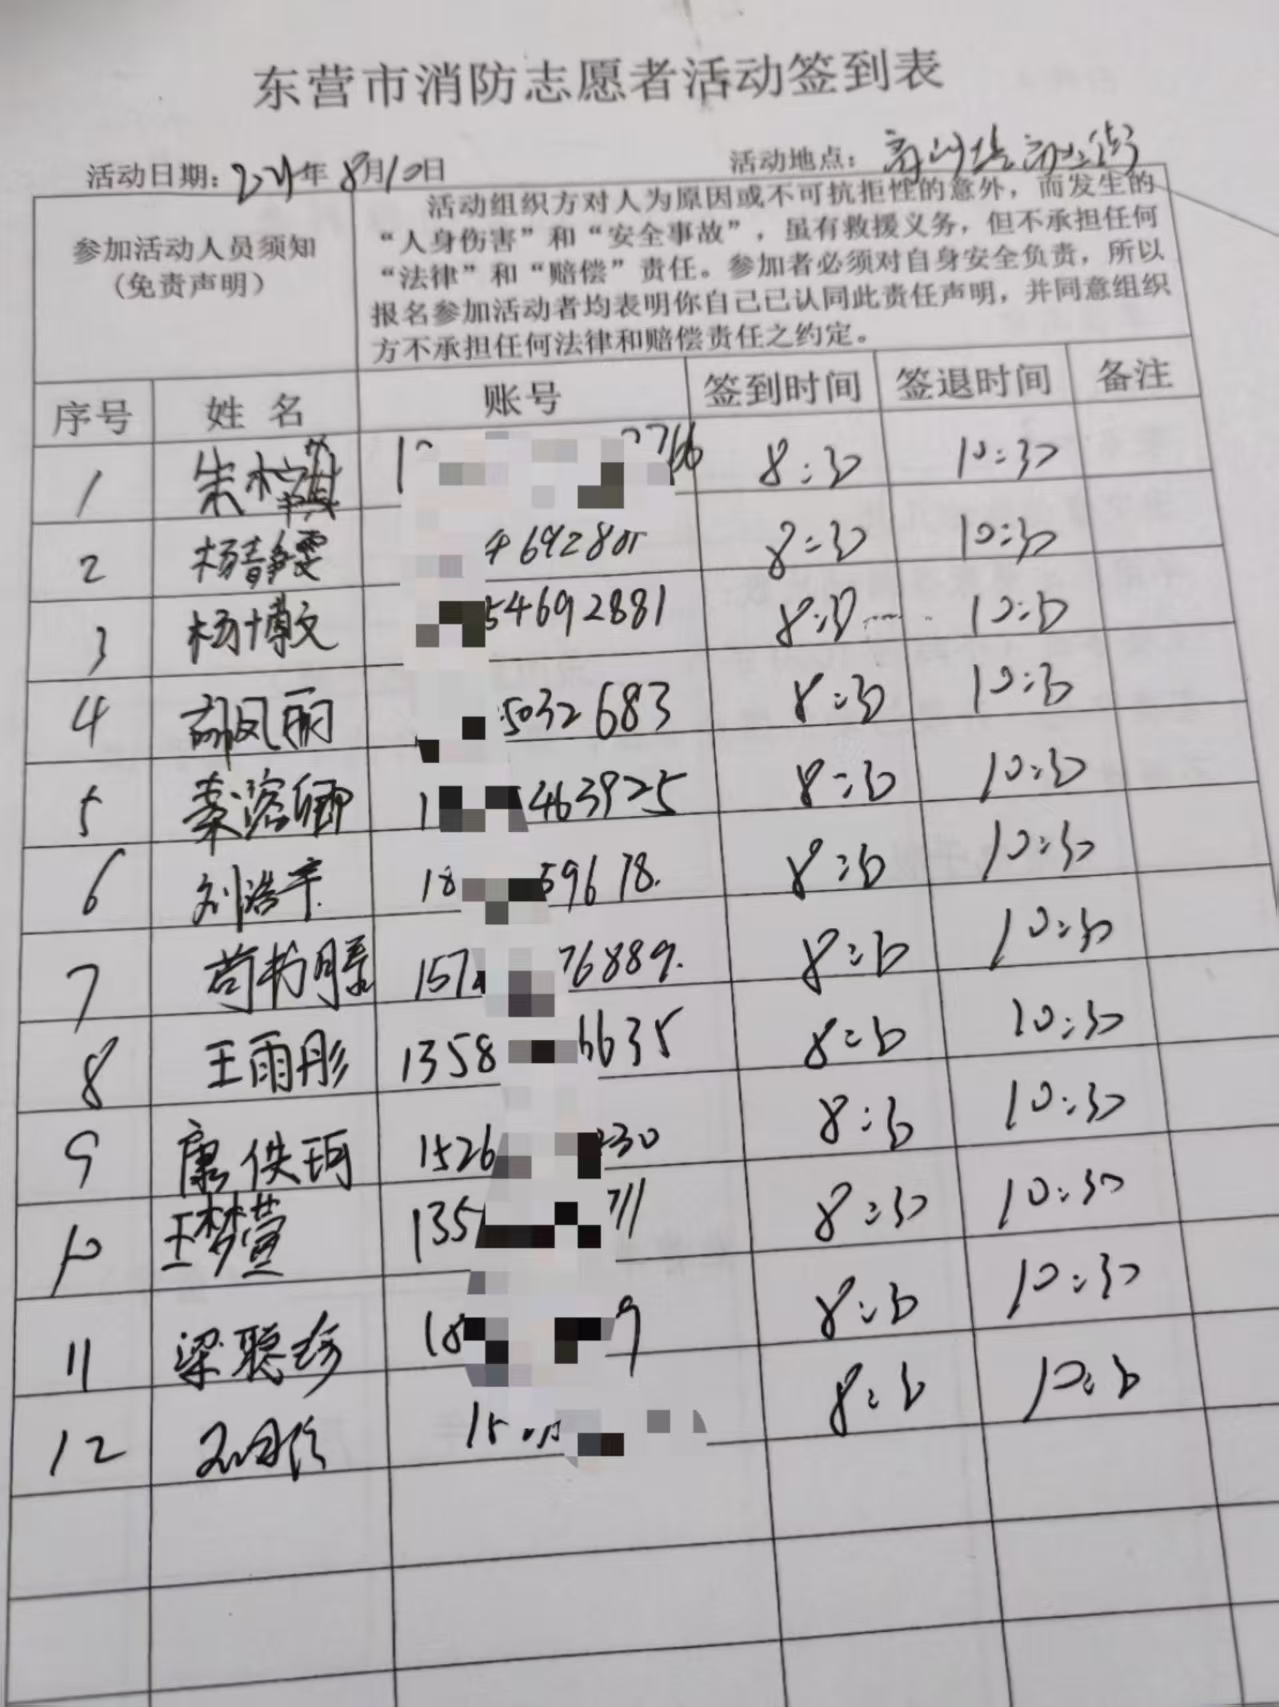 东营市消防志愿者活动签到表
活动日期：2021年8月10日 活动地点：
参加活动人员须知
（免责声明）
活动组织方对人为原因或不可抗拒性的意外，而发生的
“人身伤害”和“安全事故”，虽有救援义务，但不承担任何
“法律”和“赔偿”责任。参加者必须对自身安全负责，所以
报名参加活动者均表明你自己已认同此责任声明，并同意组织
方不承担任何法律和赔偿责任之约定。
序号 姓 名 账号 签到时间 签退时间 备注
1 朱 8:30 10:30
2 杨静雯 4692805 8:30 10:30
3 杨博文 54692881 8:30 10:30
4 凤丽 5032683 8:30 10:30
5 秦溶卿 1 463925 8:30 10:30
6 刘浩平 18 59678. 8:30 10:30
7 苟书腾 157 76889. 8:30 10:30
8 王雨彤 1358 6635 8:30 10:30
9 康佚珂 1526 230 8:30 10:30
10 王梦萱 135 711 8:30 10:30
11 梁聪珍 18 9 8:30 10:30
12 15 8:30 10:30